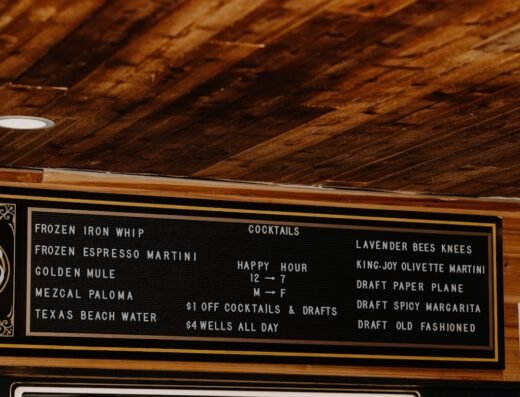 FROZEN IRON WHIP
FROZEN ESPRESSO MARTINI
GOLDEN MULE
MEZCAL PALOMA
TEXAS BEACH WATER
COCKTAILS
HAPPY HOUR
12 → 7
M → F
$1 OFF COCKTAILS & DRAFTS
$4 WELLS ALL DAY
LAVENDER BEES KNEES
KING-JOY OLIVETTE MARTINI
DRAFT PAPER PLANE
DRAFT SPICY MARGARITA
DRAFT OLD FASHIONED